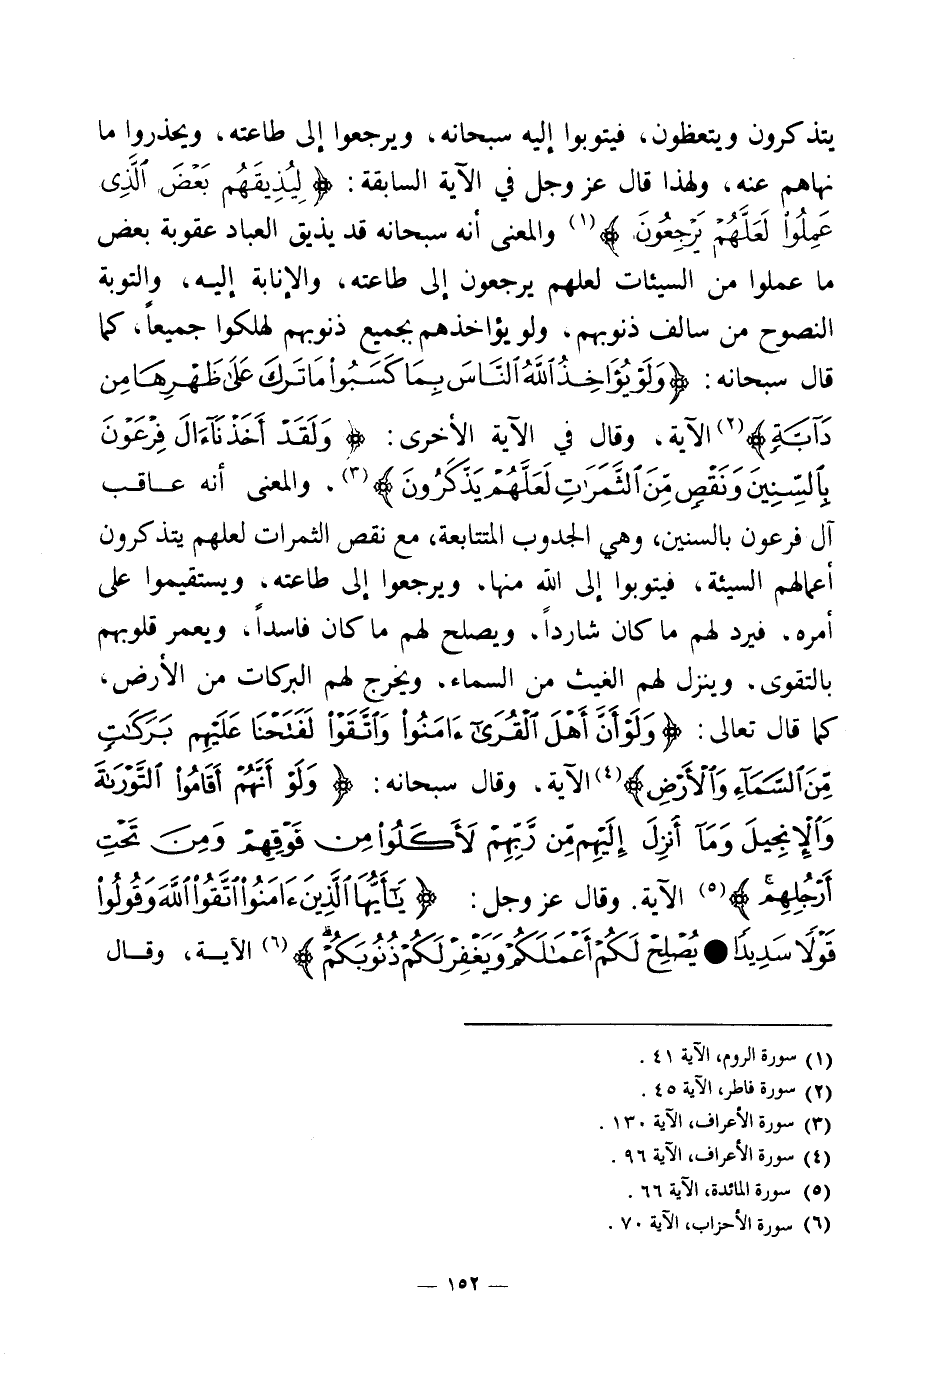 يتذكرون ويتعظون، فيتوبوا إليه سبحانه، ويرجعوا إلى طاعته، ويحذروا ما
نهاهم عنه، ولهذا قال عز وجل في الآية السابقة: ﴿ لِيُذِيقَهُم بَعْضَ الَّذِى
عَمِلُوا۟ لَعَلَّهُمْ يَرْجِعُونَ ﴾(١) والمعنى أنه سبحانه قد يذيق العباد عقوبة بعض
ما عملوا من السيئات لعلهم يرجعون إلى طاعته، والإنابة إليه، والتوبة
النصوح من سالف ذنوبهم. ولو يؤاخذهم بجميع ذنوبهم لهلكوا جميعاً، كما
قال سبحانه: ﴿وَلَوْ يُؤَاخِذُ ٱللَّهُ ٱلنَّاسَ بِمَا كَسَبُوا۟ مَا تَرَكَ عَلَىٰ ظَهْرِهَا مِن
دَآبَّةٍ﴾(٢) الآية، وقال في الآية الأخرى: ﴿ وَلَقَدْ أَخَذْنَآ ءَالَ فِرْعَوْنَ
بِٱلسِّنِينَ وَنَقْصٍ مِّنَ ٱلثَّمَرَٰتِ لَعَلَّهُمْ يَذَّكَّرُونَ ﴾(٣). والمعنى أنه عاقب
آل فرعون بالسنين، وهي الجدوب المتتابعة، مع نقص الثمرات لعلهم يتذكرون
أعمالهم السيئة، فيتوبوا إلى الله منها. ويرجعوا إلى طاعته. ويستقيموا على
أمره. فيرد لهم ما كان شارداً. ويصلح لهم ما كان فاسداً، ويعمر قلوبهم
بالتقوى. وينزل لهم الغيث من السماء. ويخرج لهم البركات من الأرض،
كما قال تعالى: ﴿ وَلَوْ أَنَّ أَهْلَ ٱلْقُرَىٰٓ ءَامَنُوا۟ وَٱتَّقَوْا۟ لَفَتَحْنَا عَلَيْهِم بَرَكَٰتٍ
مِّنَ ٱلسَّمَآءِ وَٱلْأَرْضِ﴾(٤) الآية. وقال سبحانه: ﴿ وَلَوْ أَنَّهُمْ أَقَامُوا۟ ٱلتَّوْرَىٰةَ
وَٱلْإِنجِيلَ وَمَآ أُنزِلَ إِلَيْهِم مِّن رَّبِّهِمْ لَأَكَلُوا۟ مِن فَوْقِهِمْ وَمِن تَحْتِ
أَرْجُلِهِم ۚ﴾(٥) الآية. وقال عز وجل: ﴿ يَٰٓأَيُّهَا ٱلَّذِينَ ءَامَنُوا۟ ٱتَّقُوا۟ ٱللَّهَ وَقُولُوا۟
قَوْلًا سَدِيدًا ● يُصْلِحْ لَكُمْ أَعْمَٰلَكُمْ وَيَغْفِرْ لَكُمْ ذُنُوبَكُمْ ۗ﴾(٦) الآية، وقال
(١) سورة الروم، الآية ٤١ .
(٢) سورة فاطر، الآية ٤٥ .
(٣) سورة الأعراف، الآية ١٣٠ .
(٤) سورة الأعراف، الآية ٩٦ .
(٥) سورة المائدة، الآية ٦٦ .
(٦) سورة الأحزاب، الآية ٧٠ .
— ١٥٢ —